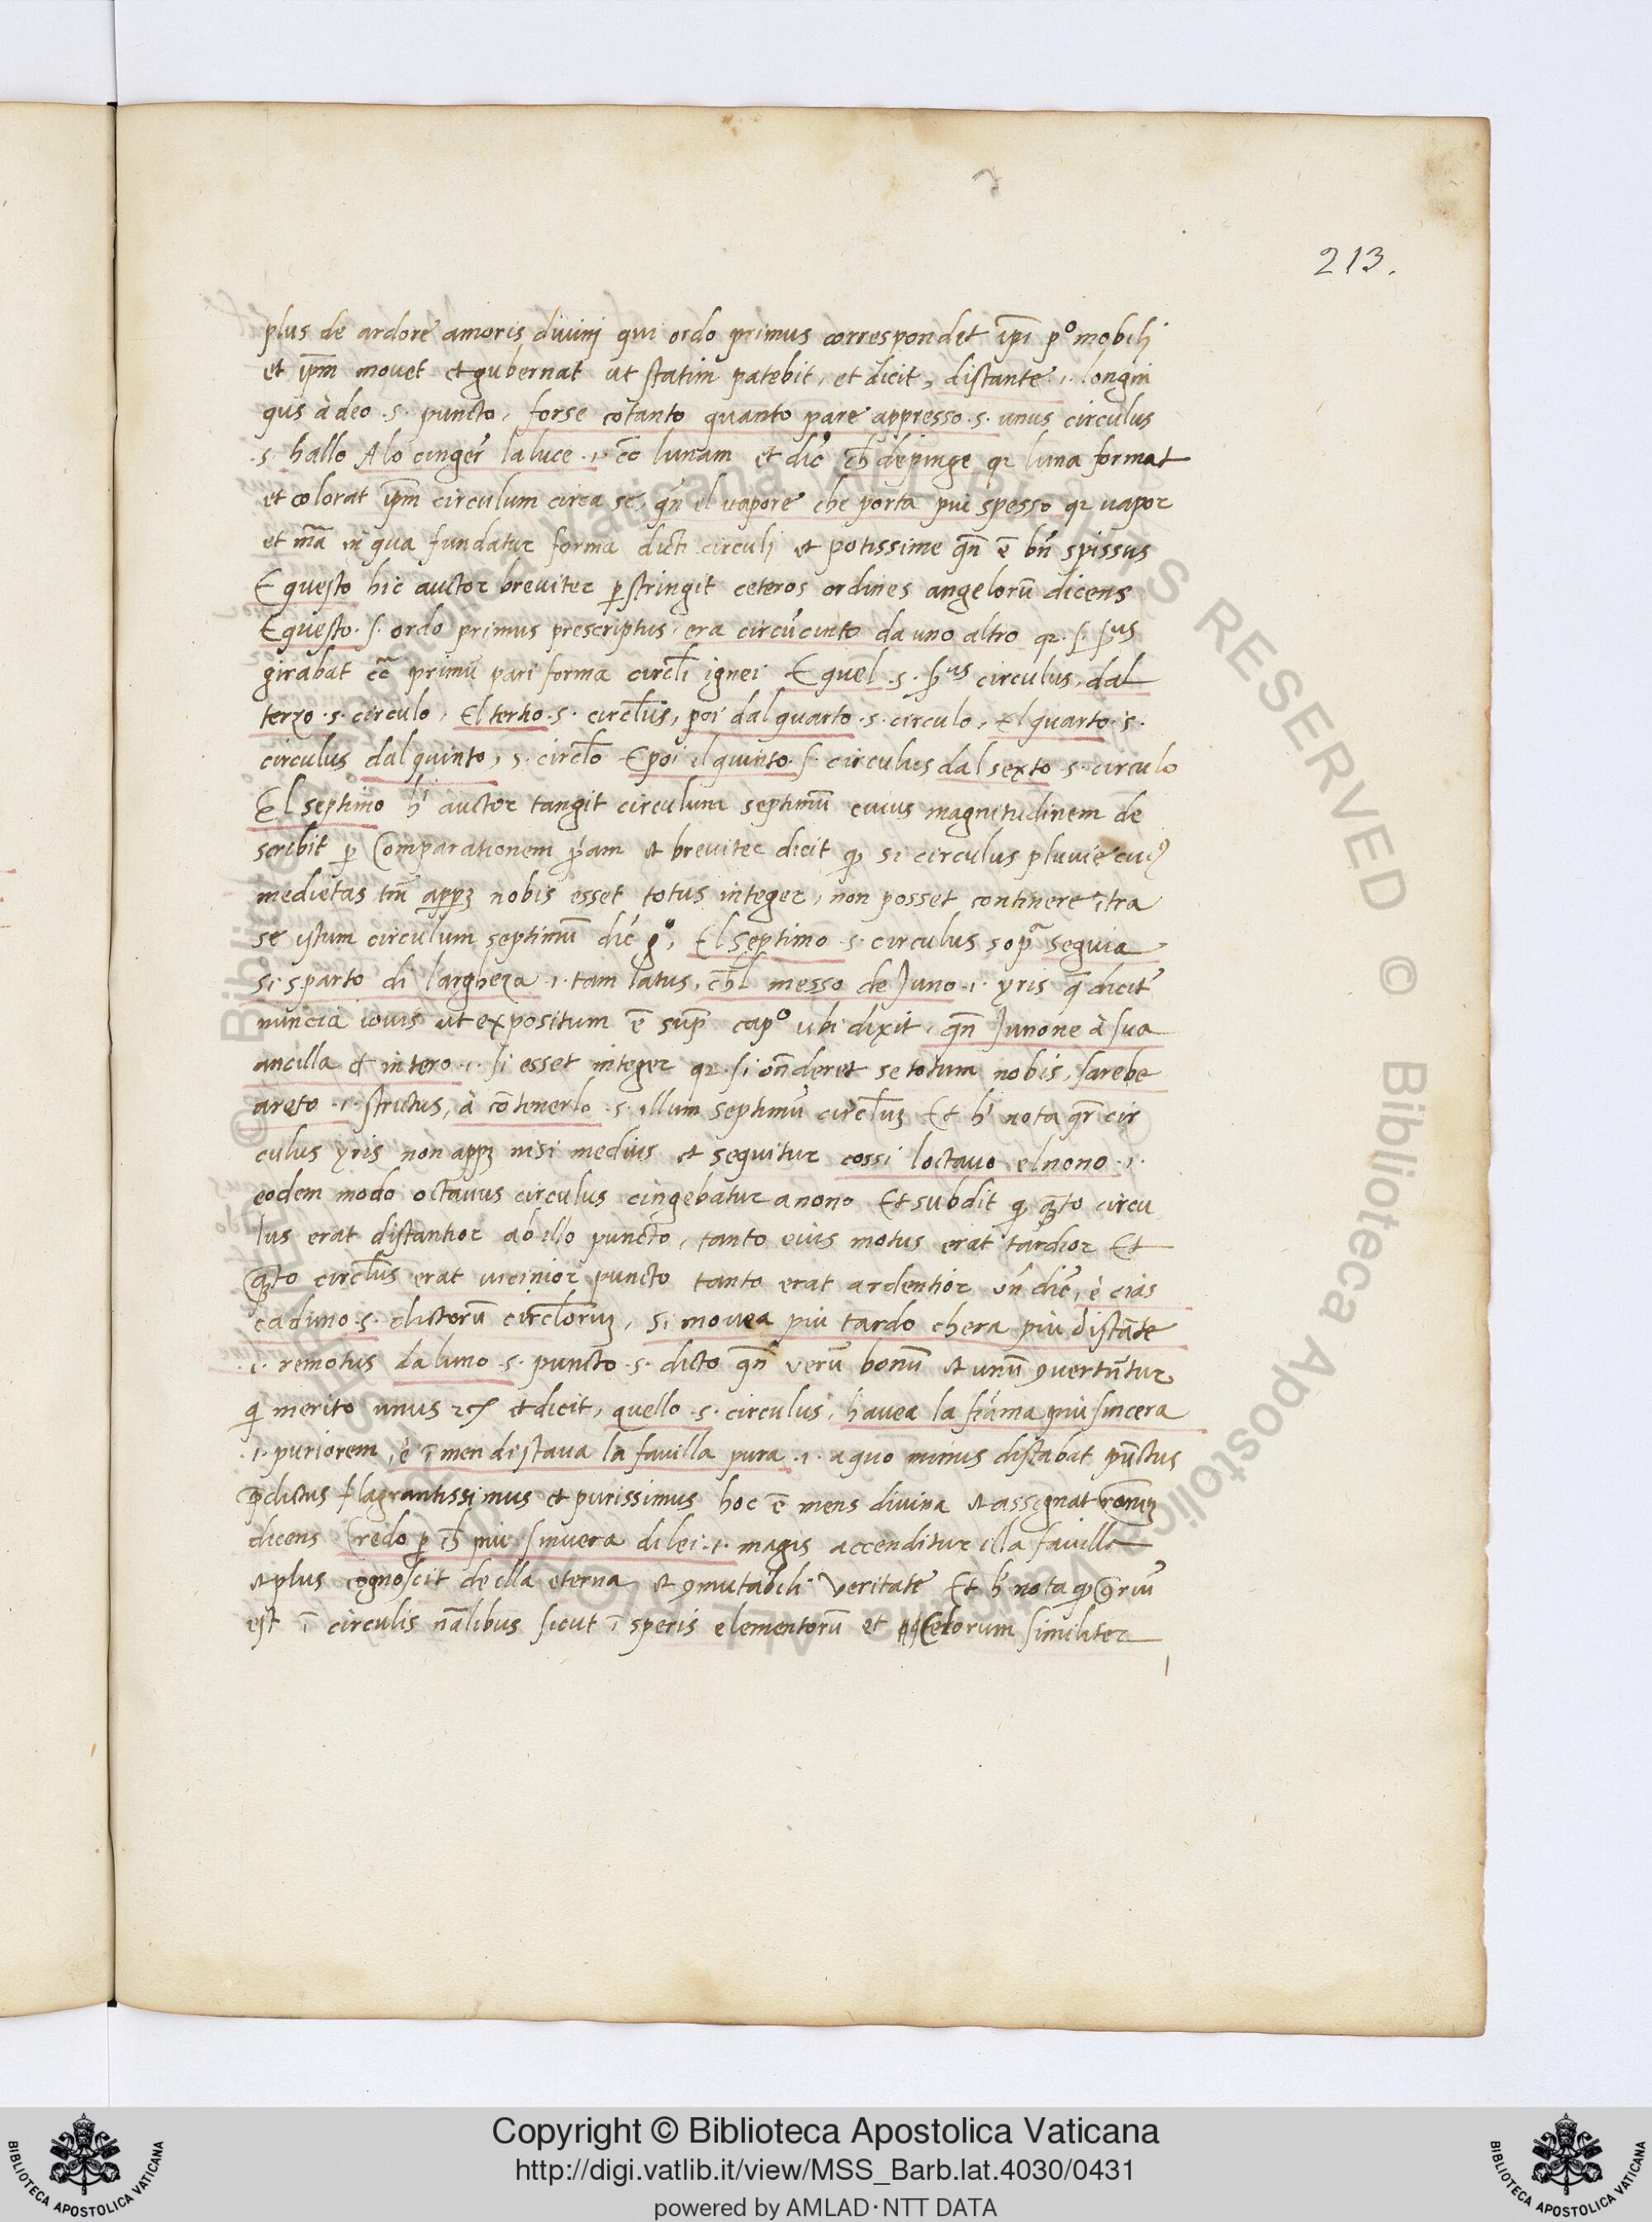 213.
plus de ardore amoris divinj qui ordo primus correspondet ip̄i p.º mobili
et ip̄m mouet et gubernat ut statim patebit, et dicit, distante .i. longin
qus à deo .s. puncto, forse cotanto quanto pare appresso .s. unus circulus
.s. hallo Alo cinger la luce .i. cc̄ lunam et dic̄ ch̄ depinge qz luna format
et colorat ip̄m circulum circa se, qn̄ el uapore che porta piu spesso qz uapor
et mā in qua fundatur forma dicti circuli et potissime qn̄ ē bn̄ spissus
E questo hic auctor breuiter pstringit ceteros ordines angelorū dicens
E questo .s. ordo primus prescriptus, era circūcinto da uno altro qz .s. s̄us
girabat cc̄ primū pari forma circl̄i ignei E quel .s. s̄us circulus, dal
terzo .s. circulo, El tertio .s. circl̄us, poi dal quarto .s. circulo, el quarto .s.
circulus dal quinto, .s. circl̄o E poi il quinto .s. circulus dal sexto .s. circulo
El septimo h̄ auctor tangit circulum septimū cuius magnitudinem de
scribit p Comparationem p̄am et breuiter dicit qp si circulus pluuie cuiꝰ
medietas tm̄ appꝫ nobis esset totus integer, non posset continere ītra
se ystum circulum septimū dic̄ gº, El septimo .s. circulus sopᵃ seguia
si sparto di largheza .i. tam latus, ch̄l messo de Juno .i. yris q̄ dicit̄
nuncia iouis ut expositum ē sup̄ cap.º ubi dixit, qn̄ Junone à sua
ancilla et intero .i. si esset integer qz si on̄deret se totum nobis, sarebe
arcto .i. strictus, à cōtenerlo .s. illum septimū circl̄uꝫ Et h̄ nota qr̄ cir
culus yris non appꝫ nisi medius et sequitur cossi loctauo el nono .i.
eodem modo octauus circulus cingebatur a nono Et subdit qp qꝫto circu
lus erat distantior ab illo puncto, tanto eius motus erat tardior Et
qꝫto circl̄us erat uicinior puncto tanto erat ardentior un̄ dic̄, è cias
caduno .s. dictorū circl̄oruꝫ, si mouea piu tardo chera piu distāte
.i. remotus da luno .s. puncto .s. dicto qn̄ verū bonū et unū ꝯuertūtur
qi merito unus et dicit, quello .s. circulus, hauea la fiāma piu sincera
.i. puriorem, è cī men distaua la fauilla pura .i. a quo minus distabat pūctus
p̄dictus flagrantissimus et purissimus hoc ē mens diuina et assignat rōnuꝫ
dicens Credo p ch̄ piu sinuera di lei .i. magis accenditur illa fauilla
et plus cognoscit de illa eterna et ꝯmutabili veritate Et h̄ nota qp ꝯriū
est ī circulis nālibus sicut ī speris elementorū et Celorum similiter
Copyright © Biblioteca Apostolica Vaticana
http://digi.vatlib.it/view/MSS_Barb.lat.4030/0431
powered by AMLAD·NTT DATA
BIBLIOTECA APOSTOLICA VATICANA
BIBLIOTECA APOSTOLICA VATICANA